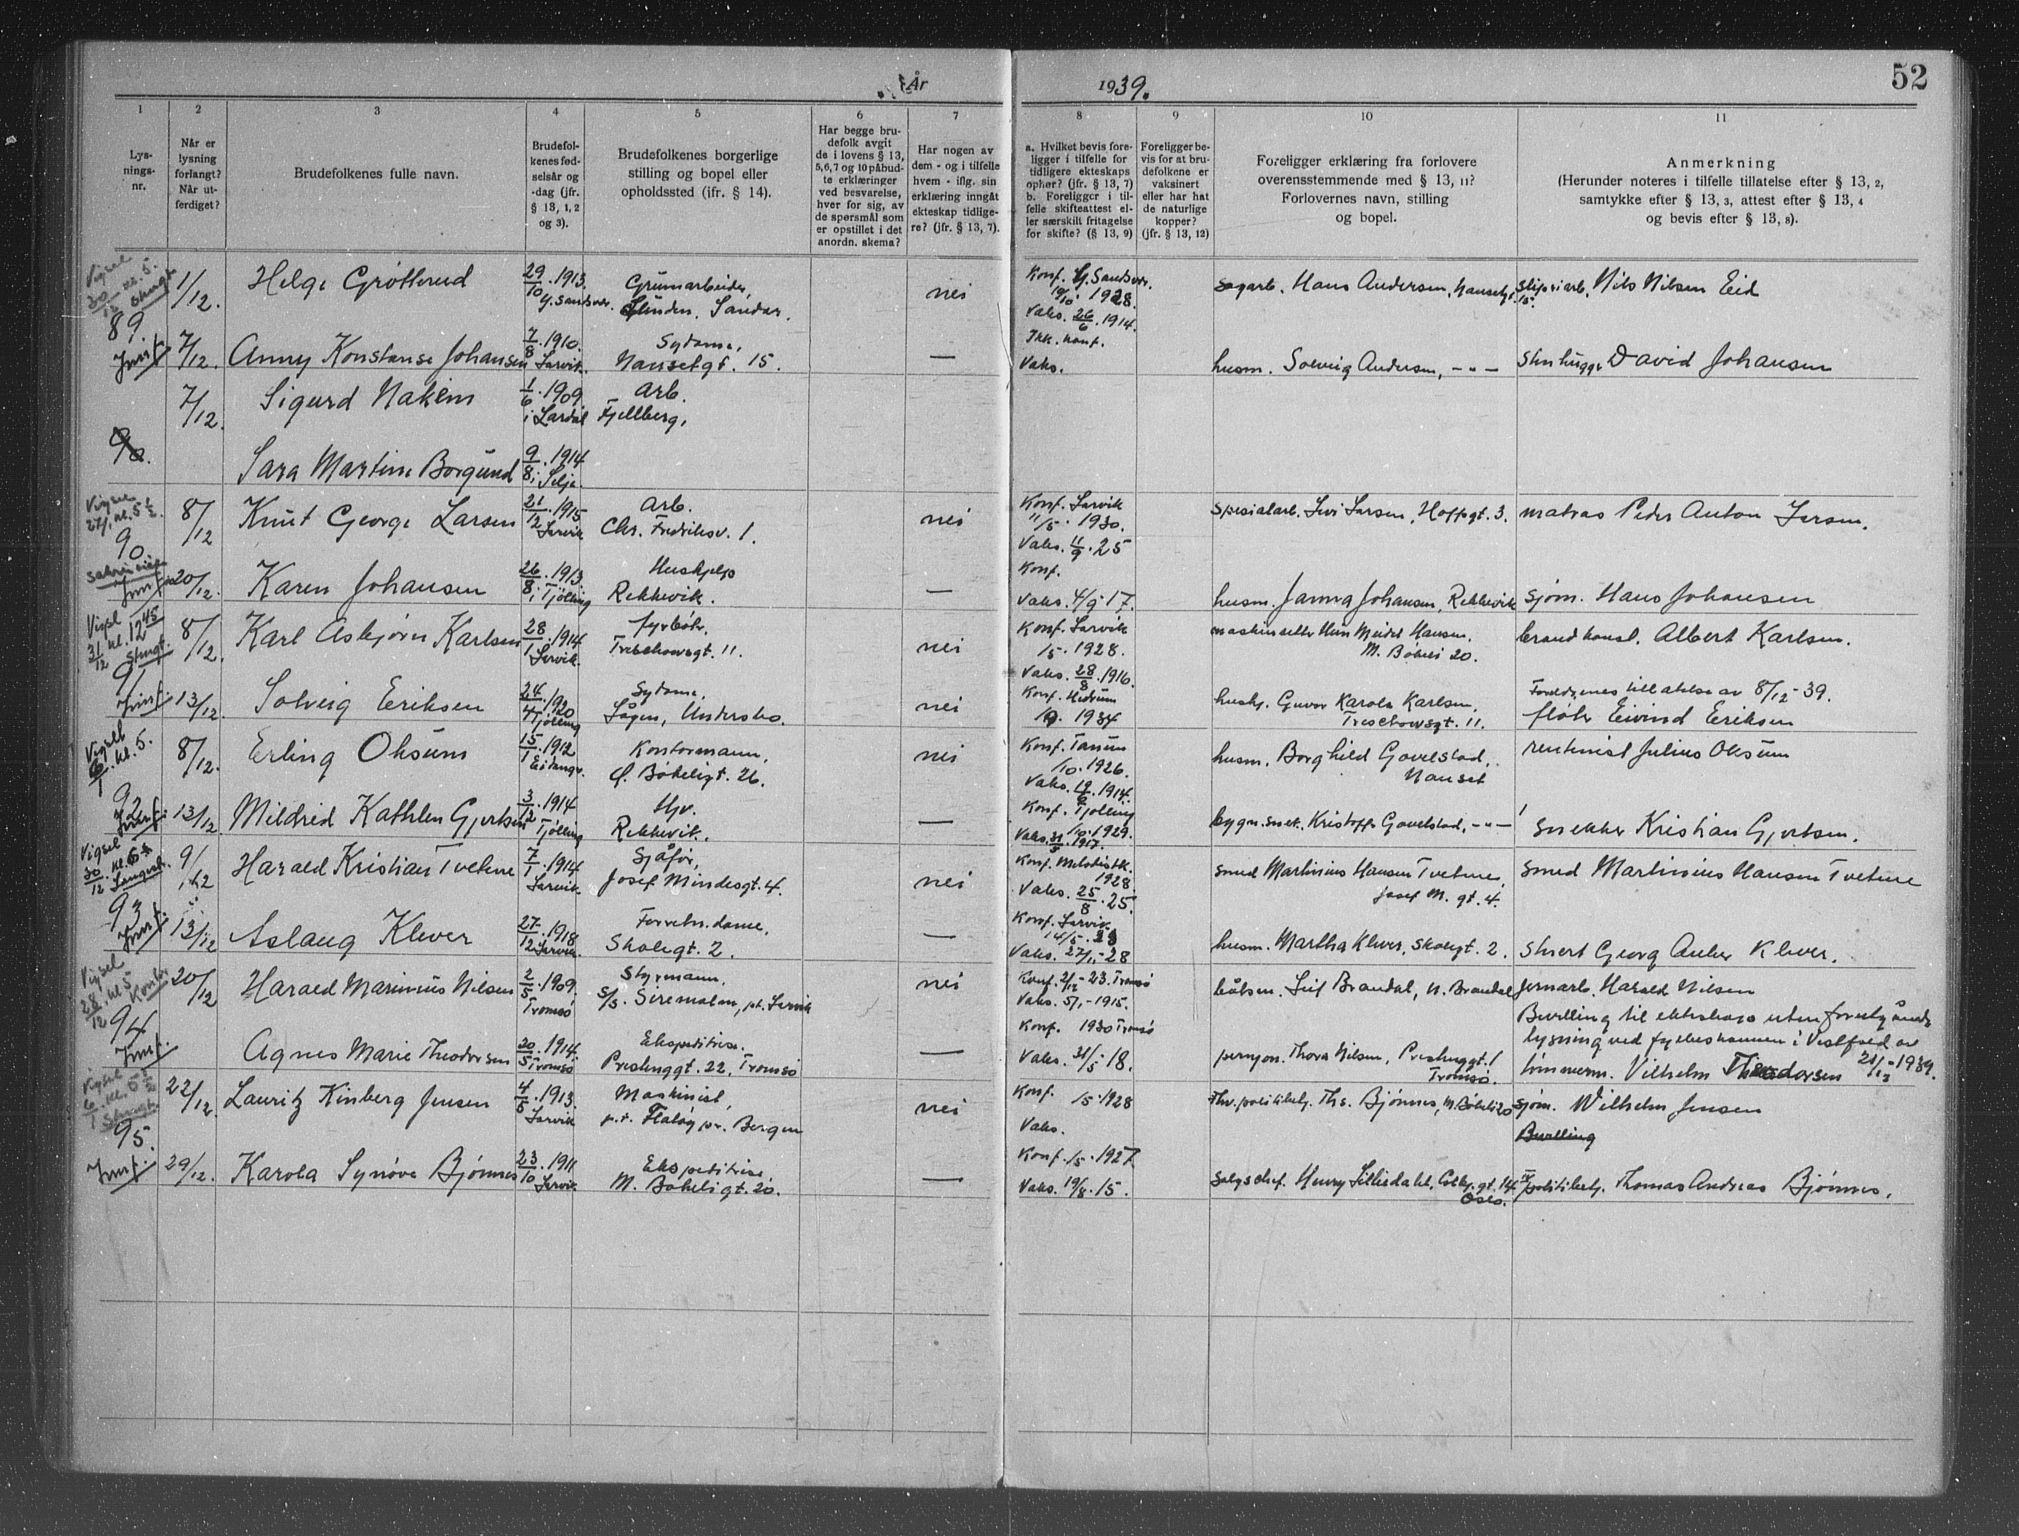 År 1939.
52
1 2 3 4 5 6 7 8 9 10 11
Lysnings-nr.
Når er lysning forlangt? Når utferdiget?
Brudefolkenes fulle navn.
Brudefolkenes fødselsår og -dag (jfr. § 13, 1, 2 og 3).
Brudefolkenes borgerlige stilling og bopel eller opholdssted (ifr. § 14).
Har begge brudefolk avgit de i lovens § 13, 5,6,7 og 10 påbudte erklæringer ved besvarelse, hver for sig, av de spørsmål som er opstillet i det anordn. skema?
Har nogen av dem - og i tilfelle hvem - iflg. sin erklæring inngåt ekteskap tidligere? (jfr. § 13, 7).
a. Hvilket bevis foreligger i tilfelle for tidligere ekteskaps ophør? (jfr. § 13, 7) b. Foreligger i tilfelle skifteattest eller særskilt fritagelse for skifte? (§ 13, 9)
Foreligger bevis for at brudefolkene er vaksinert eller har hat de naturlige kopper? (jfr. § 13, 12)
Foreligger erklæring fra forlovere overensstemmende med § 13, 11? Forlovernes navn, stilling og bopel.
Anmerkning (Herunder noteres i tilfelle tillatelse efter § 13, 2, samtykke efter § 13, 3, attest efter § 13, 4 og bevis efter § 13, 8).
Vigsel 30/12 kl. 5.
89.
1/12. Helge Grøtterud 29/10 1913. Grunnarbeider, Sandar. nei Konf. 1928. Vaks. 26/6 1914. sagarb. Hans Andersen, Nansetgt. 15. Nils Nilsen Eid
7/12. Anny Konstanse Johansen 7/8 1910. Larvik. Sydame, Nansetgt. 15. — Ikk. konf. Vaks. husm. Solveig Andersen, -"- Stenhugger David Johansen
7/12. Sigurd Nakem 1/6 1909. i Lardal arb. Fjellberg,
90.
Sara Martine Borgund 9/8 1914 i Selje
Vigsel 27/1. kl. 5 1/2.
90
8/12 Knut George Larsen 21/12 1915. Larvik Arb. Chr. Fredriksv. 1. nei Konf. Larvik 11/5. 1930. Vaks. 11/9. 25 spesialarb. Levi Larsen, Hoffsgt. 3. matros Peder Anton Larsen.
20/12. Karen Johansen 26/8 1913. i Tjølling Hushjelp Rekkevik. — Konf. Vaks. 4/9-17. husm. Janna Johansen, Rekkevik sjøm. Hans Johansen
Vigsel 31/12 kl. 12 45
91
8/12. Karl Asbjørn Karlsen 28/1 1914 Larvik. fyrbøt. Treschowsgt. 11. nei Konf. Larvik 15. 1928. Vaks. 28/8 1916. Hansen, M. Bøkeli 20. brandkonst. Albert Karlsen.
13/12. Solveig Eriksen 24/4 1920 Tjølling Sydame, Lågen, Undersbo. nei Konf. Hedrum 1934 Karola Karlsen, Treschowsgt. 11. Foreldrenes tillatelse av 8/12-39. fløter Eivind Eriksen
Vigsel 6/1. kl. 5.
92
8/12. Erling Oksum 15/1 1912 Eidanger. Kontormann, Ø. Bøkeligt. 26. nei Konf. Tanum /10. 1926. Vaks. 1914. husm. Borghild Gavelstad, Nanset rentenist Julius Oksum
13/12 Mildrid Kathlen Gjertsen 3/12 1914 Tjølling Hjv. Rekkevik. — Konf. Tjølling /10. 1929. Vaks. 1917. bygn.snek. Kristoffer Gavelstad, -"- snekker Kristian Gjertsen.
Vigsel 30/12
93
9/12 Harald Kristian Tvetene 7/1 1914 Larvik. Sjåfør, Josef Mindesgt. 4. nei Konf. Metodistk. 1928. Vaks. 25/8. 25. smed Martinius Hansen Tvetene, Josef M. gt. 4. smed Martinius Hansen Tvetene
13/12 Aslaug Klever 27/12 1918 Larvik. Forretn.dame, Skolegt. 2. — Konf. Larvik 14/5. Vaks. 27/1-28 husm. Martha Klever, Skolegt. 2. Georg Anker Klever.
Vigsel 28/12 kl. 5 Kontor
94
20/12 Harald Marinius Nilsen 2/5 1909. Tromsø Styrmann, S/S. Siremalm, pt. Larvik nei Konf. 2/12-23. Tromsø Vaks. 5/1-1915. båtsm. Leif Brandal, N. Brandal jernarb. Harald Nilsen
Bevilling til ekteskap uten foregående lysning ved fylkesmannen i Vestfold av 21/12-1939.
Agnes Marie Theodorsen 20/5 1914. Tromsø Ekspeditrise. Prestenggt. 22, Tromsø — Konf. 1930 Tromsø Vaks. 31/5-18. pensjon. Thora Nilsen, Prestenggt. 1 Tromsø. tømmerm. Vilhelm Theodorsen
Vigsel 6/1. kl. 5 1/2
95.
22/12. Lauritz Kinberg Jensen 4/5 1913. Larvik Maskinist, p.t. Flatøy pr. Bergen nei Konf. /5. 1928 Vaks. Ths. Bjønnes, M. Bøkeli 20 sjøm. Wilhelm Jensen
Bevilling
29/12. Karola Synøve Bjønnes 23/10 1911. Larvik Ekspeditrise, M. Bøkeligt. 20. — Konf. /5. 1927 Vaks. 19/8. 15. salgschef. Henry Lillesdahl, Oslo. politibetj. Thomas Andreas Bjønnes.